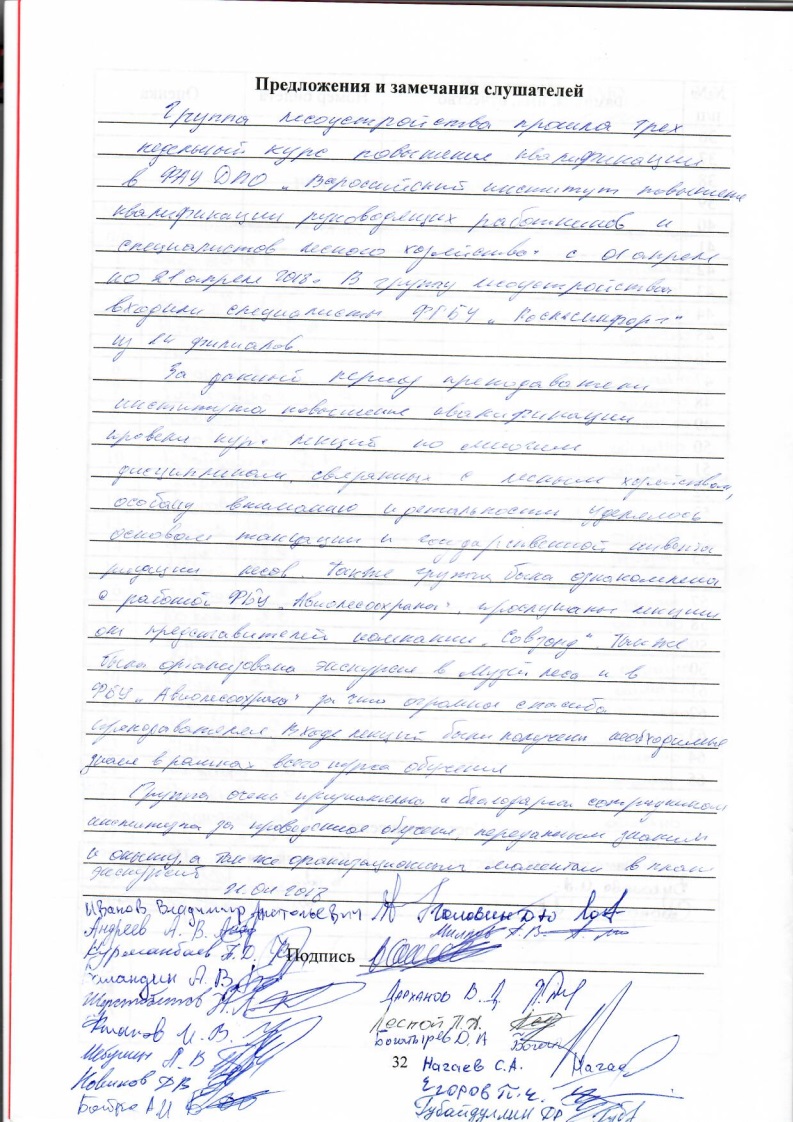 Предложения и замечания слушателей
Группа лесоустройства прошла трех
недельный курс повышения квалификации
в ФАУ ДПО „Всероссийский институт повышения
квалификации руководящих работников и
специалистов лесного хозяйства" с 01 апреля
по 21 апреля 2018г В группу лесоустройства
входили специалисты ФГБУ „Рослесинфорг"
из 14 филиалов.
За данный период преподаватели
института повышения квалификации
провели курс лекций по многим
дисциплинам, связанных с лесным хозяйством,
особому вниманию и детальности уделялось
основам таксации и государственной инвента
ризации лесов. Также группа была ознакомлена
с работой ФБУ „Авиалесоохрана", прослушаны лекции
от представителей компании „Совзонд". Также
была организована экскурсия в Музей леса и в
ФБУ „Авиалесоохрана" за что огромное спасибо
преподавателям. В ходе лекций были получены необходимые
знания в рамках всего курса обучения
Группа очень признательна и благодарна сотрудникам
института за проведенное обучение, переданным знаниям
и опыту, а так же организационным моментам в план
экскурсий
21.04 2018
Иванов Владимир Анатольевич Головин Д Ю
Андреев А. В. А.В.
Курманбаев Т. Д. Подпись
Баландин А. В.
Дарханов В. Д.
Лесной П. Н.
И. В. Богатырев Д. А
А В
32 Нагаев С. А. Нагае
Новиков Д В Егоров П. Ч.
А И Губайдуллин ДР